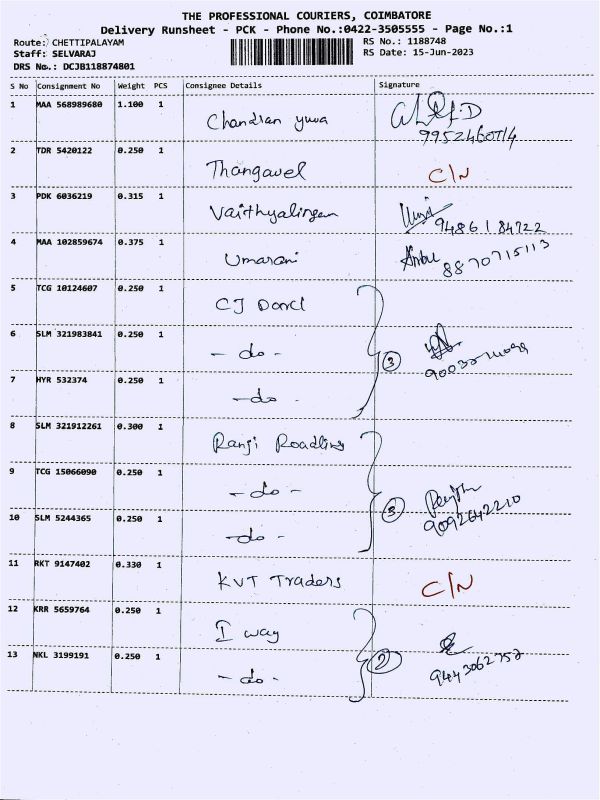 THE PROFESSIONAL COURIERS, COIMBATORE
Delivery Runsheet - PCK - Phone No.:0422-3505555 - Page No.:1
Route: CHETTIPALAYAM RS No.: 1188748
Staff: SELVARAJ RS Date: 15-Jun-2023
DRS No.: DCJB118874801
S No Consignment No Weight PCS Consignee Details Signature
1 MAA 568989680 1.100 1 Chandran yuva
9952460714
2 TDR 5420122 0.250 1 Thangavel C/N
3 PDK 6036219 0.315 1 Vaithyalingam 9486184722
4 MAA 102859674 0.375 1 Umarani Anbu
8870715113
5 TCG 10124607 0.250 1 CJ
6 SLM 321983841 0.250 1 - do - 3
7 HYR 532374 0.250 1 - do -
8 SLM 321912261 0.300 1 Ranji Roadlins
9 TCG 15066090 0.250 1 - do -
10 SLM 5244365 0.250 1 - do - 3 9092642210
11 RKT 9147402 0.330 1 KVT Traders C/N
12 KRR 5659764 0.250 1 I way
13 NKL 3199191 0.250 1 - do - 2 9443062752